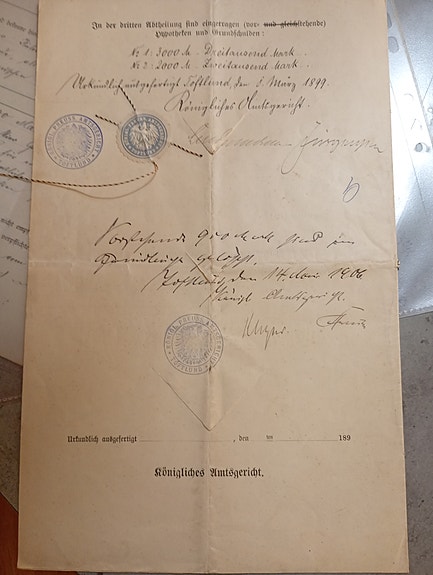 In der dritten Abtheilung sind eingetragen (vor- und gleichstehende)
Hypotheken und Grundschulden:
№ 1: 3000 M. Dreitausend Mark.
№ 2: 2000 M. Zweitausend Mark.
Urkundlich ausgefertigt Toftlund, den 8. März 1899.
Königliches Amtsgericht.
KÖNIGL. PREUSS. AMTSGERICHT
TOFTLUND
Vorstehende 9000 Mark sind im
Grundbuche gelöscht.
Toftlund, den 14. Mai 1906
Königl. Amtsgericht.
KÖNIGL. PREUSS. AMTSGERICHT
TOFTLUND
Urkundlich ausgefertigt , den 189
Königliches Amtsgericht.